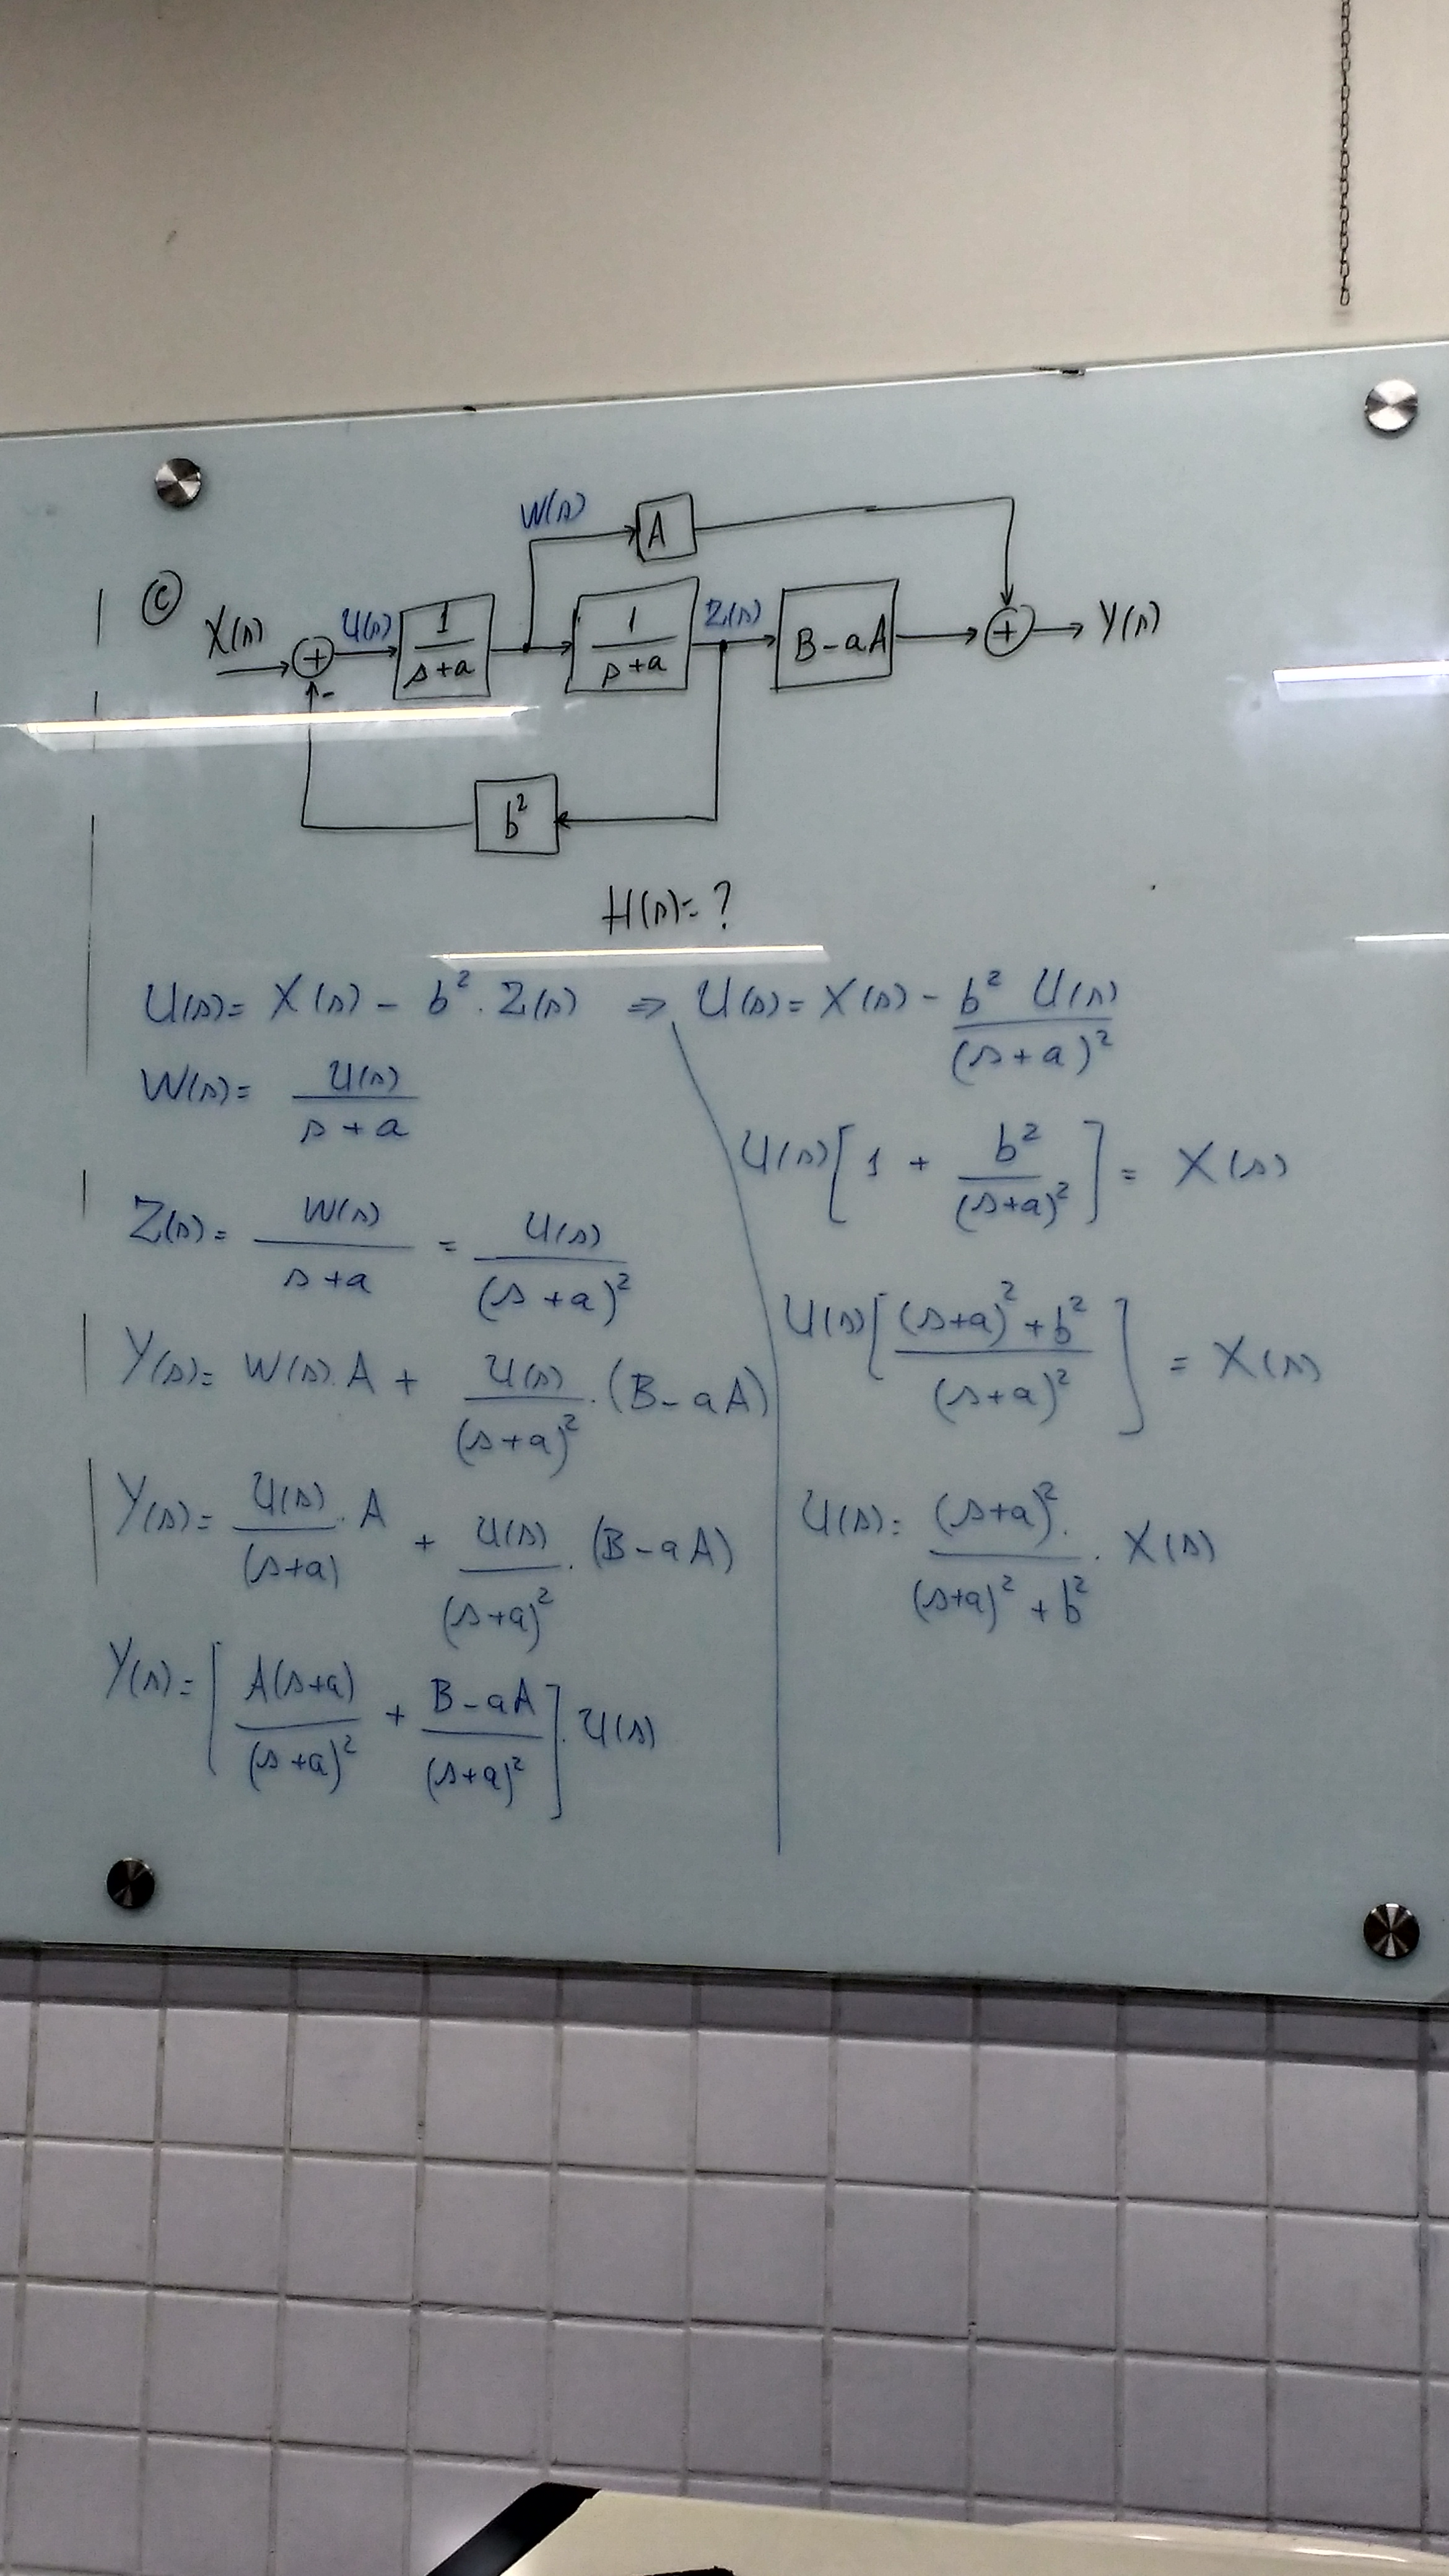 W(s) A
(c) X(s) + U(s) 1/(s+a) 1/(s+a) Z(s) B-aA + Y(s)
-
b²
H(s)= ?
U(s)= X(s) - b² . Z(s) ⇒ U(s)= X(s) - b² U(s)/(s+a)²
W(s)= U(s)/(s+a)
Z(s)= W(s)/(s+a) = U(s)/(s+a)²
Y(s)= W(s).A + U(s)/(s+a)² . (B-aA)
Y(s)= U(s)/(s+a) . A + U(s)/(s+a)² . (B-aA)
Y(s)= [A(s+a)/(s+a)² + (B-aA)/(s+a)²] . U(s)
U(s)[1 + b²/(s+a)²] = X(s)
U(s)[((s+a)²+b²)/(s+a)²] = X(s)
U(s)= (s+a)²/((s+a)²+b²) . X(s)